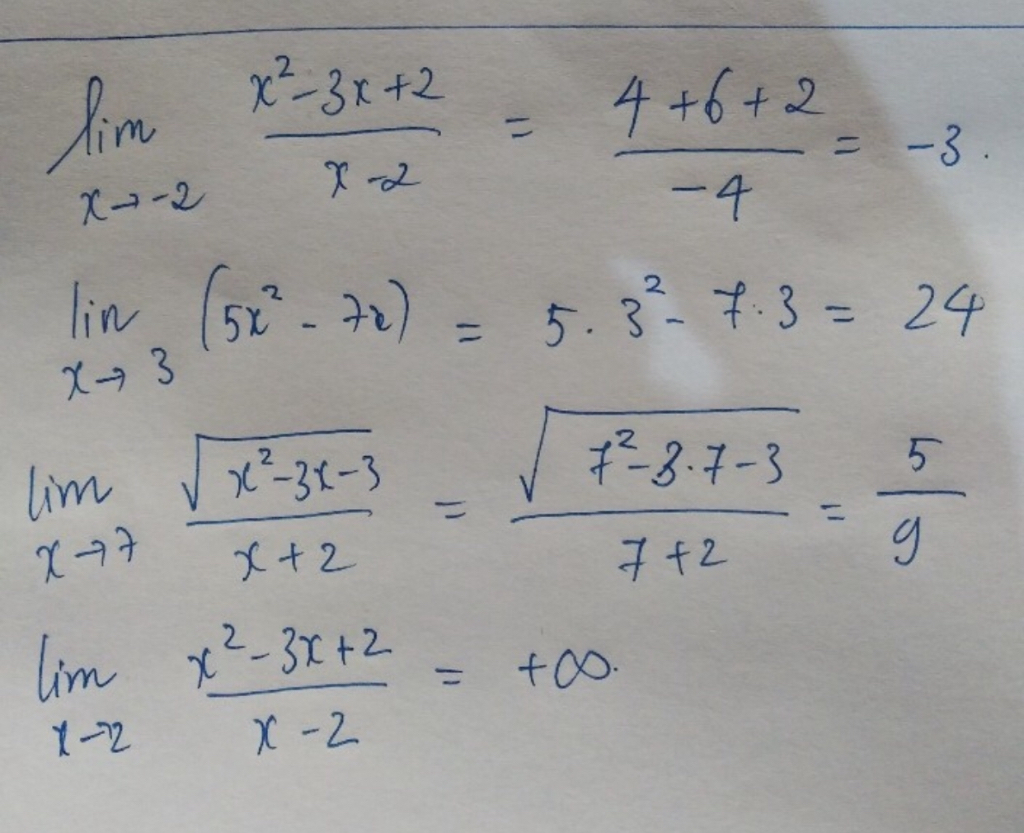 lim x→-2 (x²-3x+2)/(x-2) = (4+6+2)/(-4) = -3.
lin x→3 (5x²-7x) = 5.3²-7.3 = 24
lim x→7 √(x²-3x-3)/(x+2) = √(7²-3.7-3)/(7+2) = 5/9
lim x→2 (x²-3x+2)/(x-2) = +∞.